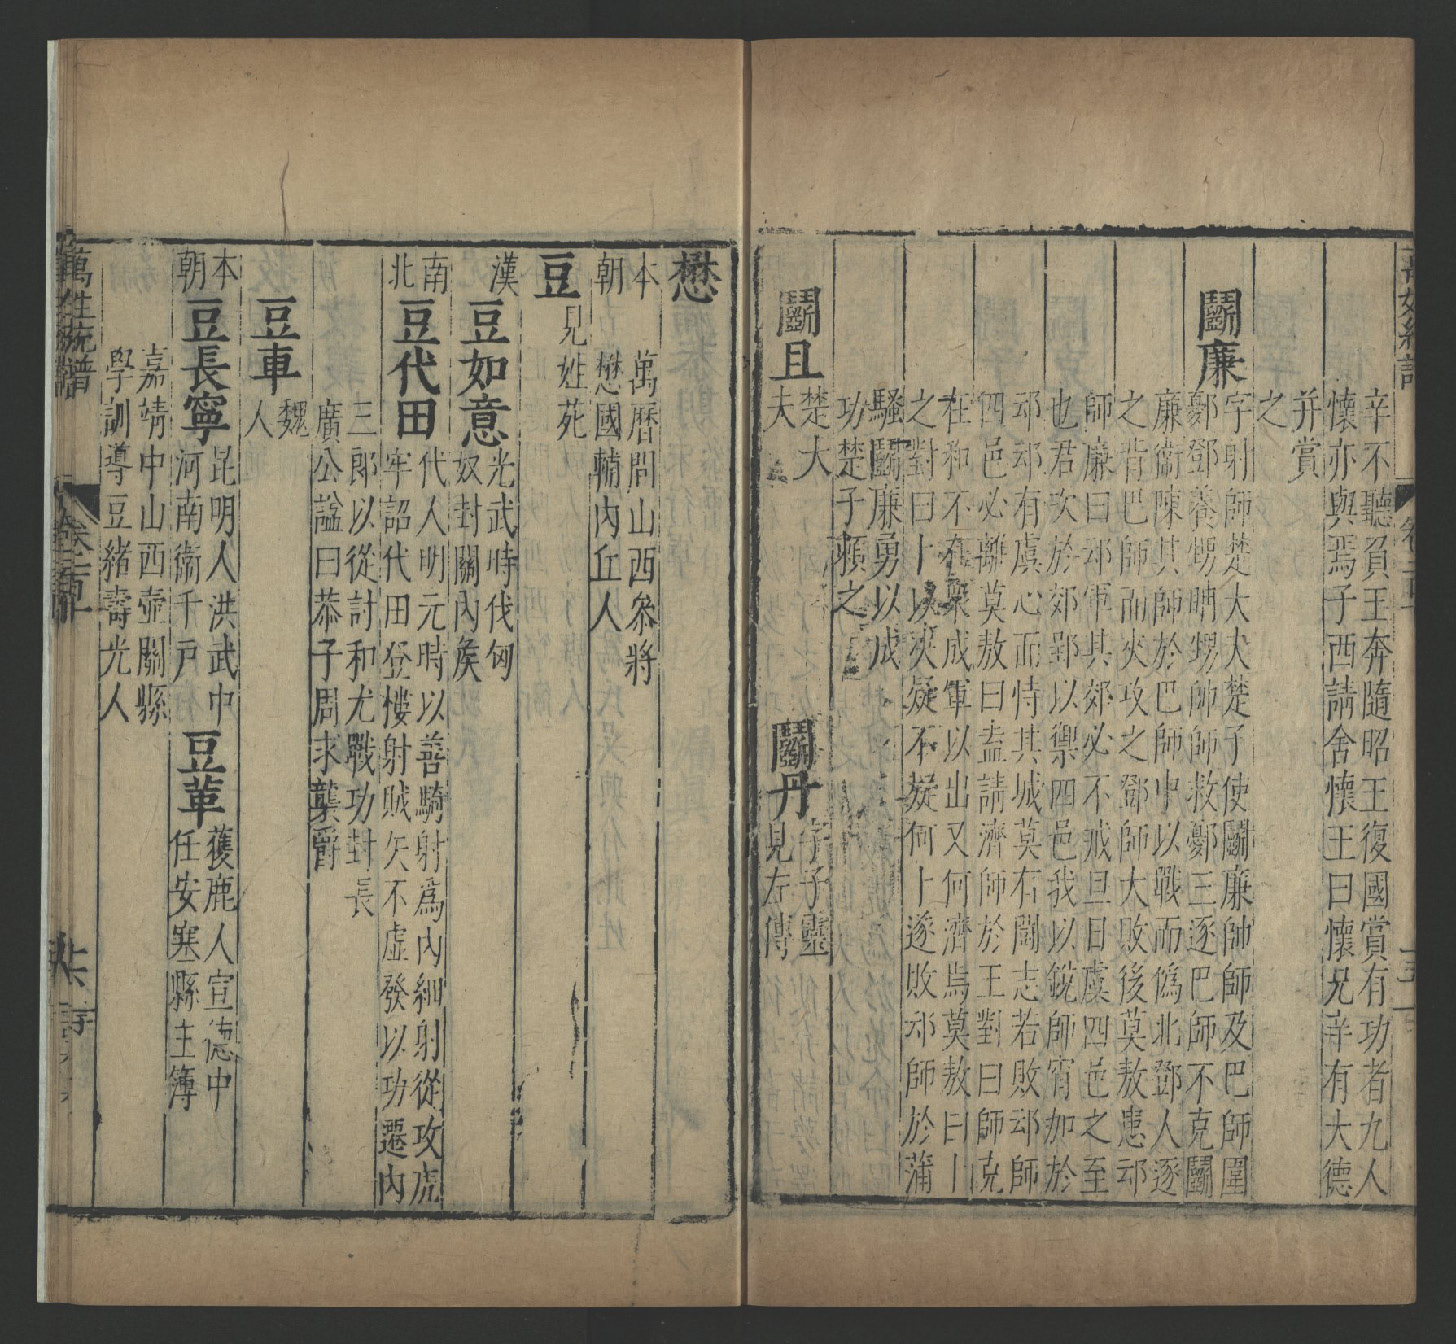 辛不聽負王奔隨昭王復國賞有功者九人
懷亦與焉子西請舍懷王曰懷兄辛有大德
并賞
之
鬬廉
字射師楚大夫楚子使鬬廉帥師及巴師圍
鄾鄧養甥聃甥帥師救鄾三逐巴師不克鬬
廉衡陳其師於巴師中以戰而偽北鄧人逐
之背巴師而夾攻之鄧師大敗後莫敖患邔
師廉曰邔軍其郊必不誡且日虞四邑之至
也君次於郊郢以禦四邑我以銳師宵加於
邔邔有虞心而恃其城莫有鬪志若敗邔師
四邑必離莫敖曰盍請濟師於王對曰師克
在和不在衆成軍以出又何濟焉莫敖曰卜
之對曰卜以決疑不疑何卜遂敗邔師於蒲
騷鬬廉勇以成
功楚子賴之
鬬且
楚大
夫
鬬丹
字子靈
見左傳
懋
本
朝
萬曆間山西叅將
懋國輔內丘人
豆
見姓苑
漢
豆如意
光武時伐匈
奴封關內矦
南
北
豆代田
代人明元時以善騎射爲內細射從攻虎
牢詔代田登樓射賊矢不虛發以功遷內
三郎以從討和尤戰功封長
廣公諡曰恭子周求襲爵
豆車
魏
人
本
朝
豆長寧
昆明人洪武中
河南衞千戶
豆莗
獲鹿人宣德中
任安塞縣主簿
嘉靖中山西壺關縣
學訓導豆緒壽光人
萬姓統譜